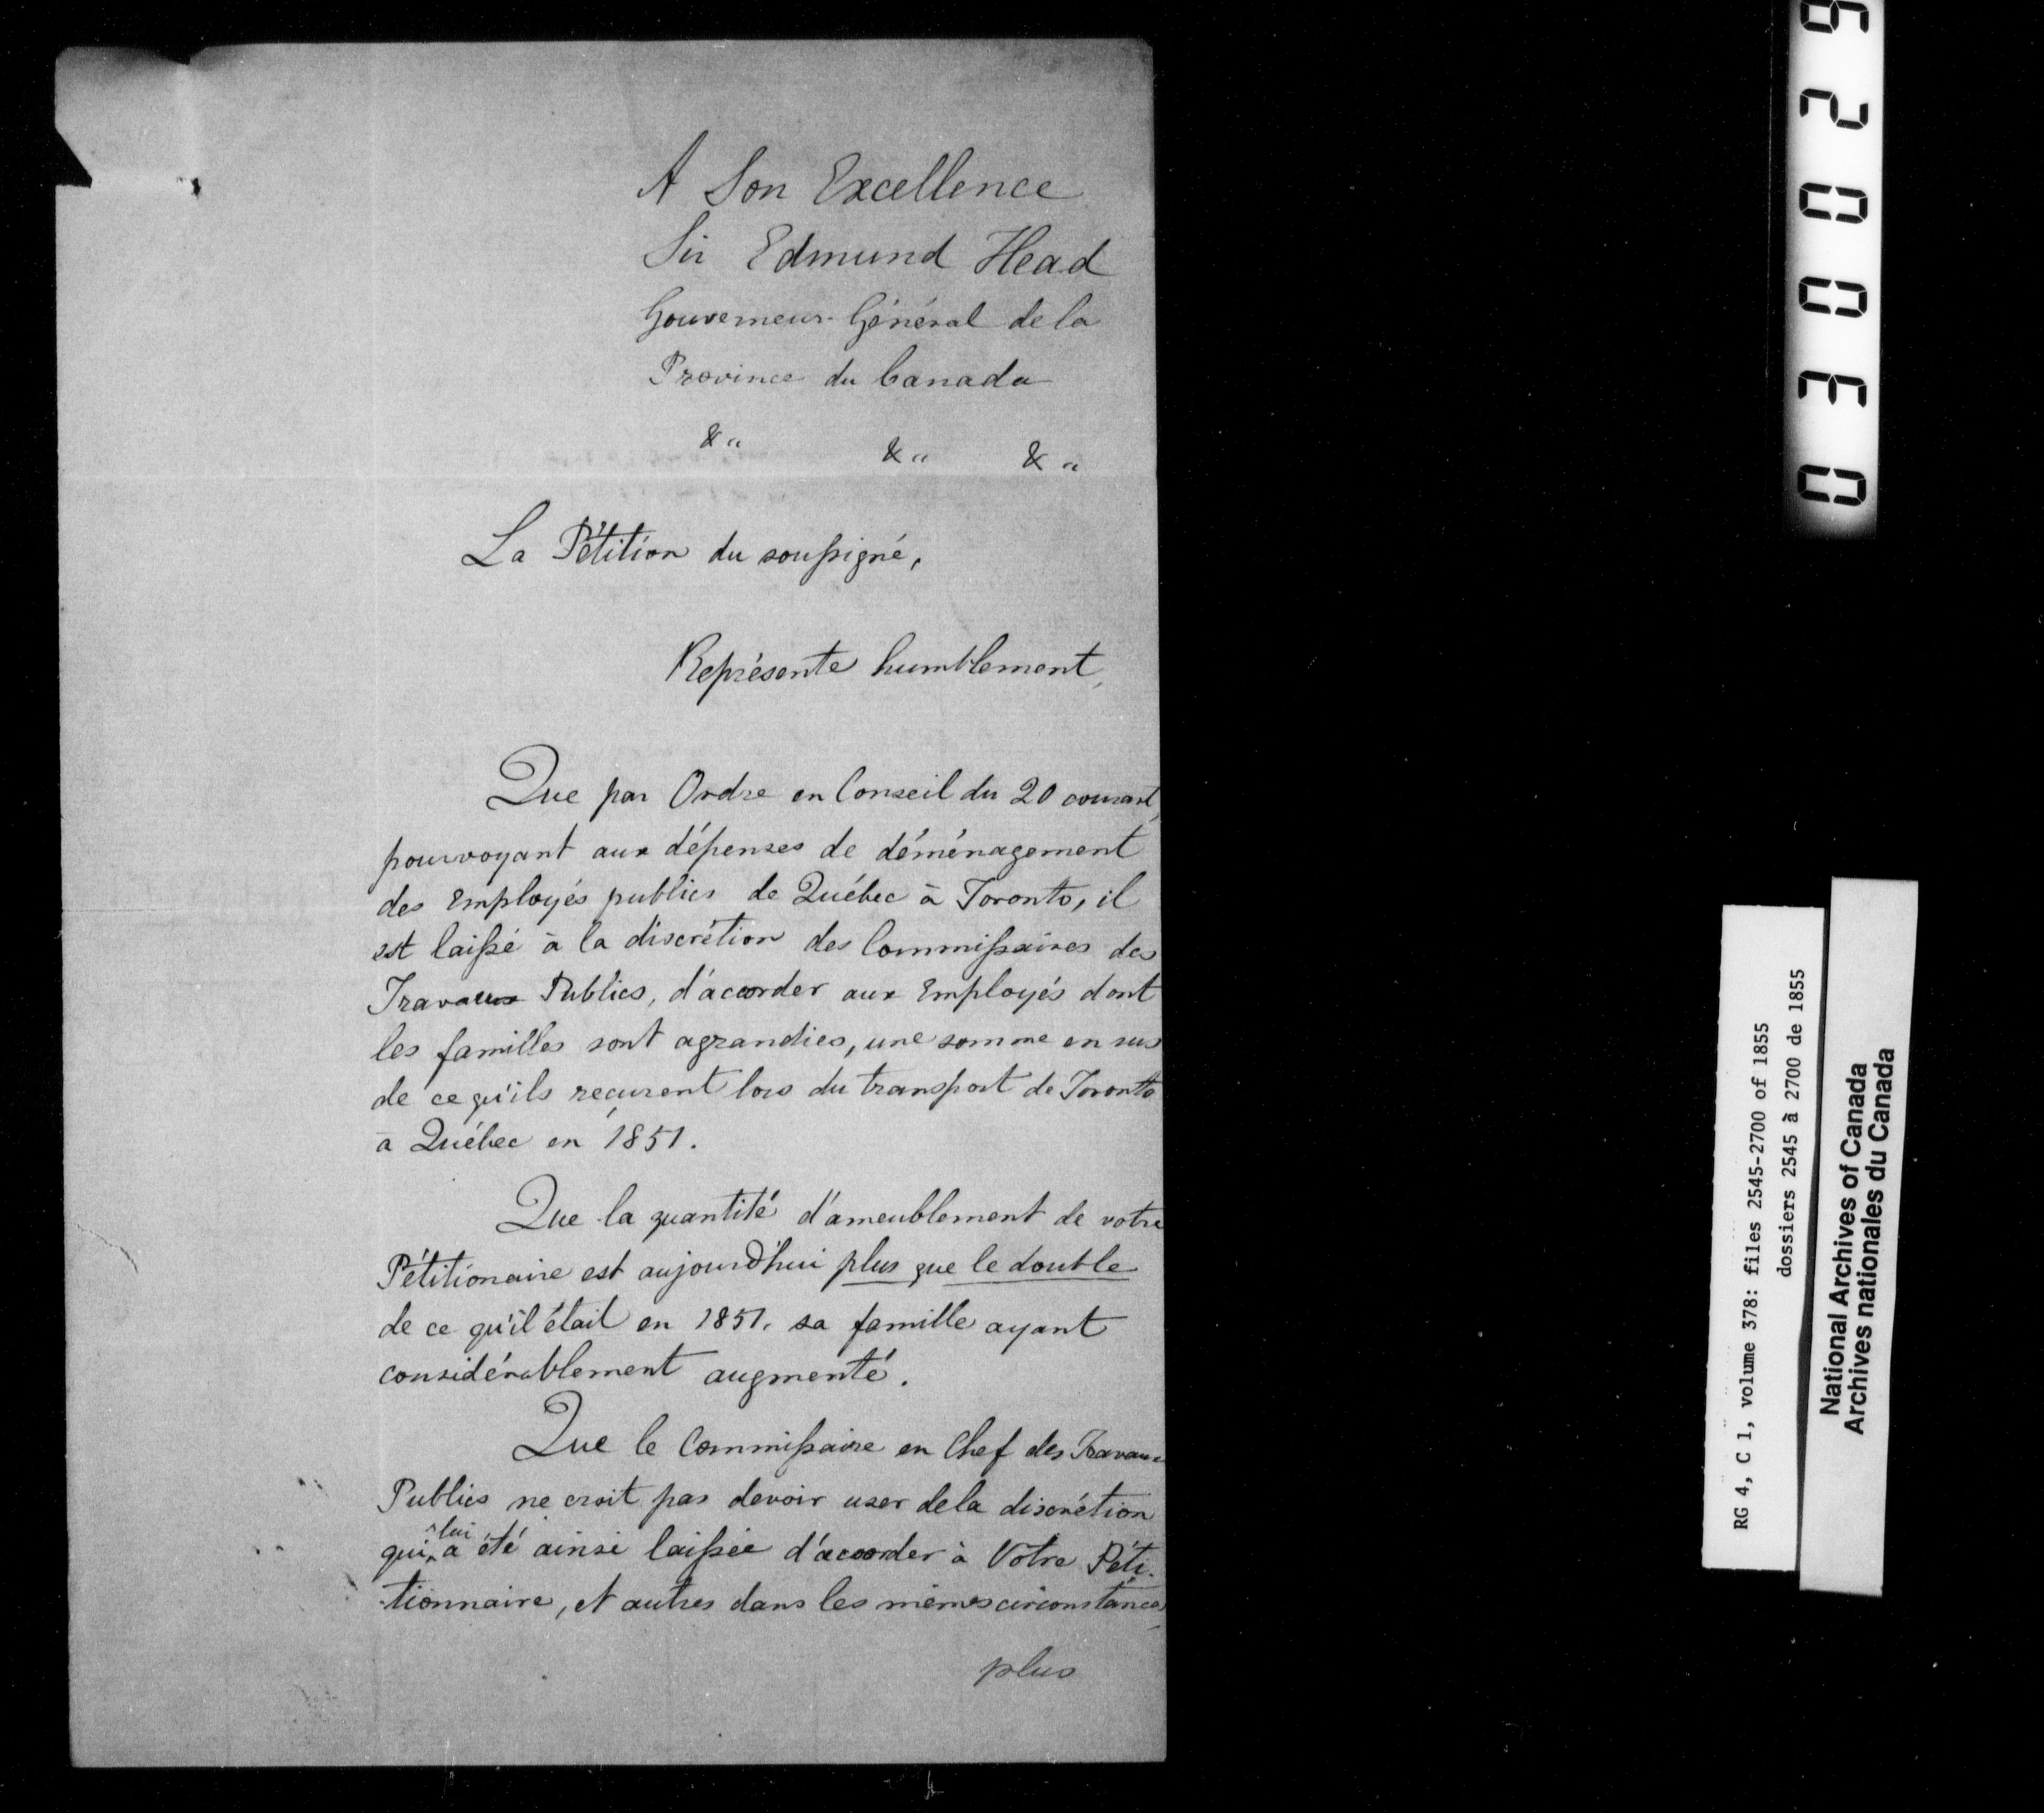 A Son Excellence
Sir Edmund Head
Gouverneur Général de la
Province du Canada
&" &" &"
La Pétition du soussigné,
Représente humblement,
Que par Ordre en Conseil du 20 courant,
pourvoyant aux dépenses de déménagement
des Employés publics de Québec à Toronto, il
est laissé à la discrétion des Commissaires des
Travaux Publics, d'accorder aux Employés dont
les familles sont agrandies, une somme en sus
de ce qu'ils reçurent lors du transport de Toronto
à Québec en 1851.
Que la quantité d'ameublement de votre
Pétitionaire est aujourd'hui plus que le double
de ce qu'il était en 1851, sa famille ayant
considérablement augmenté.
Que le Commissaire en Chef des Travaux
Publics ne croit pas devoir user de la discrétion
qui lui a été ainsi laissée d'accorder à Votre Péti-
-tionnaire, et autres dans les mêmes circonstances,
plus
030029
RG 4, C 1, volume 378: files 2545-2700 of 1855
dossiers 2545 à 2700 de 1855
National Archives of Canada
Archives nationales du Canada